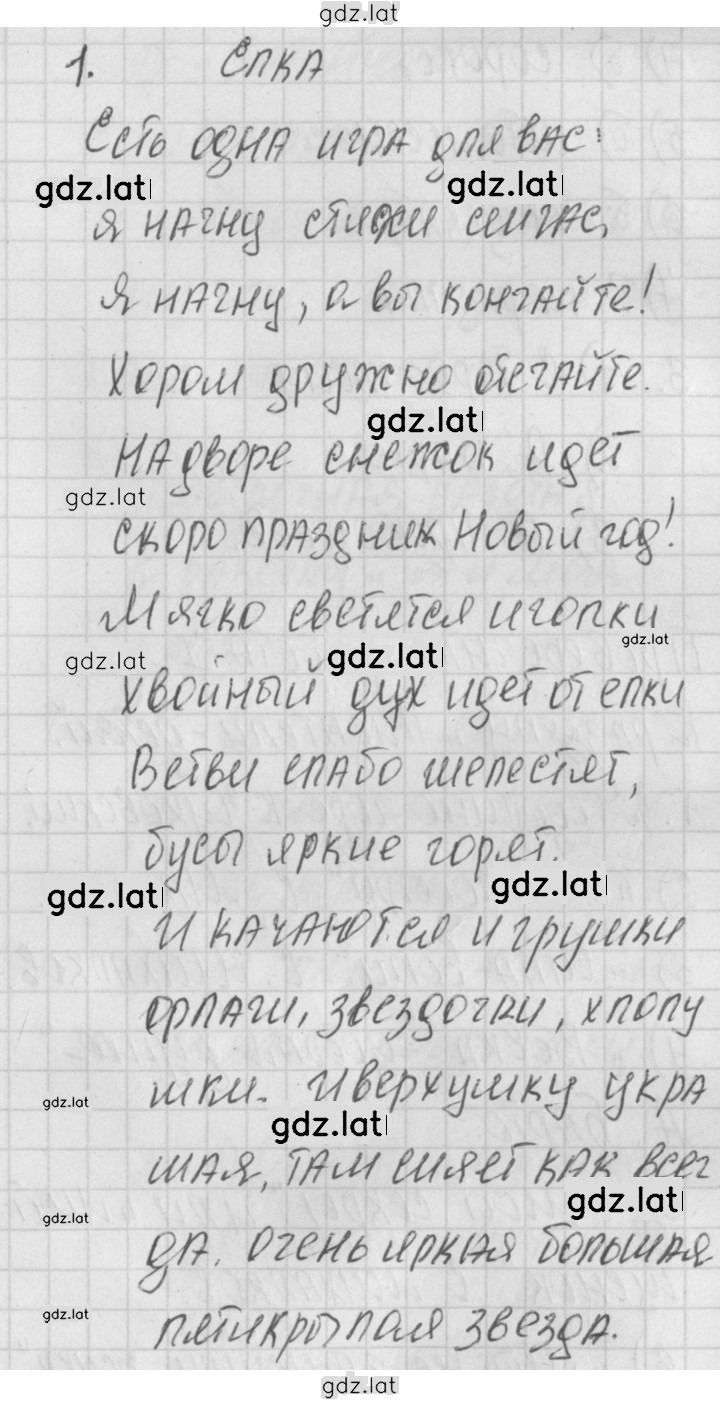 gdz.lat
1. ЕЛКА
Есть одна игра для вас:
gdz.lat gdz.lat
я начну стихи сейчас,
Я начну, а вы кончайте!
Хором дружно отвечайте.
gdz.lat
На дворе снежок идет
gdz.lat
скоро праздник Новый год!
Мягко светятся иголки
gdz.lat
gdz.lat gdz.lat
хвойный дух идет от елки
Ветви слабо шелестят,
бусы яркие горят.
gdz.lat gdz.lat
И качаются игрушки
флаги, звездочки, хлопу
gdz.lat
шки. И верхушку укра
gdz.lat
шая, там сияет как всег
gdz.lat
gdz.lat
да. Очень яркая большая
gdz.lat
пятикрылая звезда.
gdz.lat